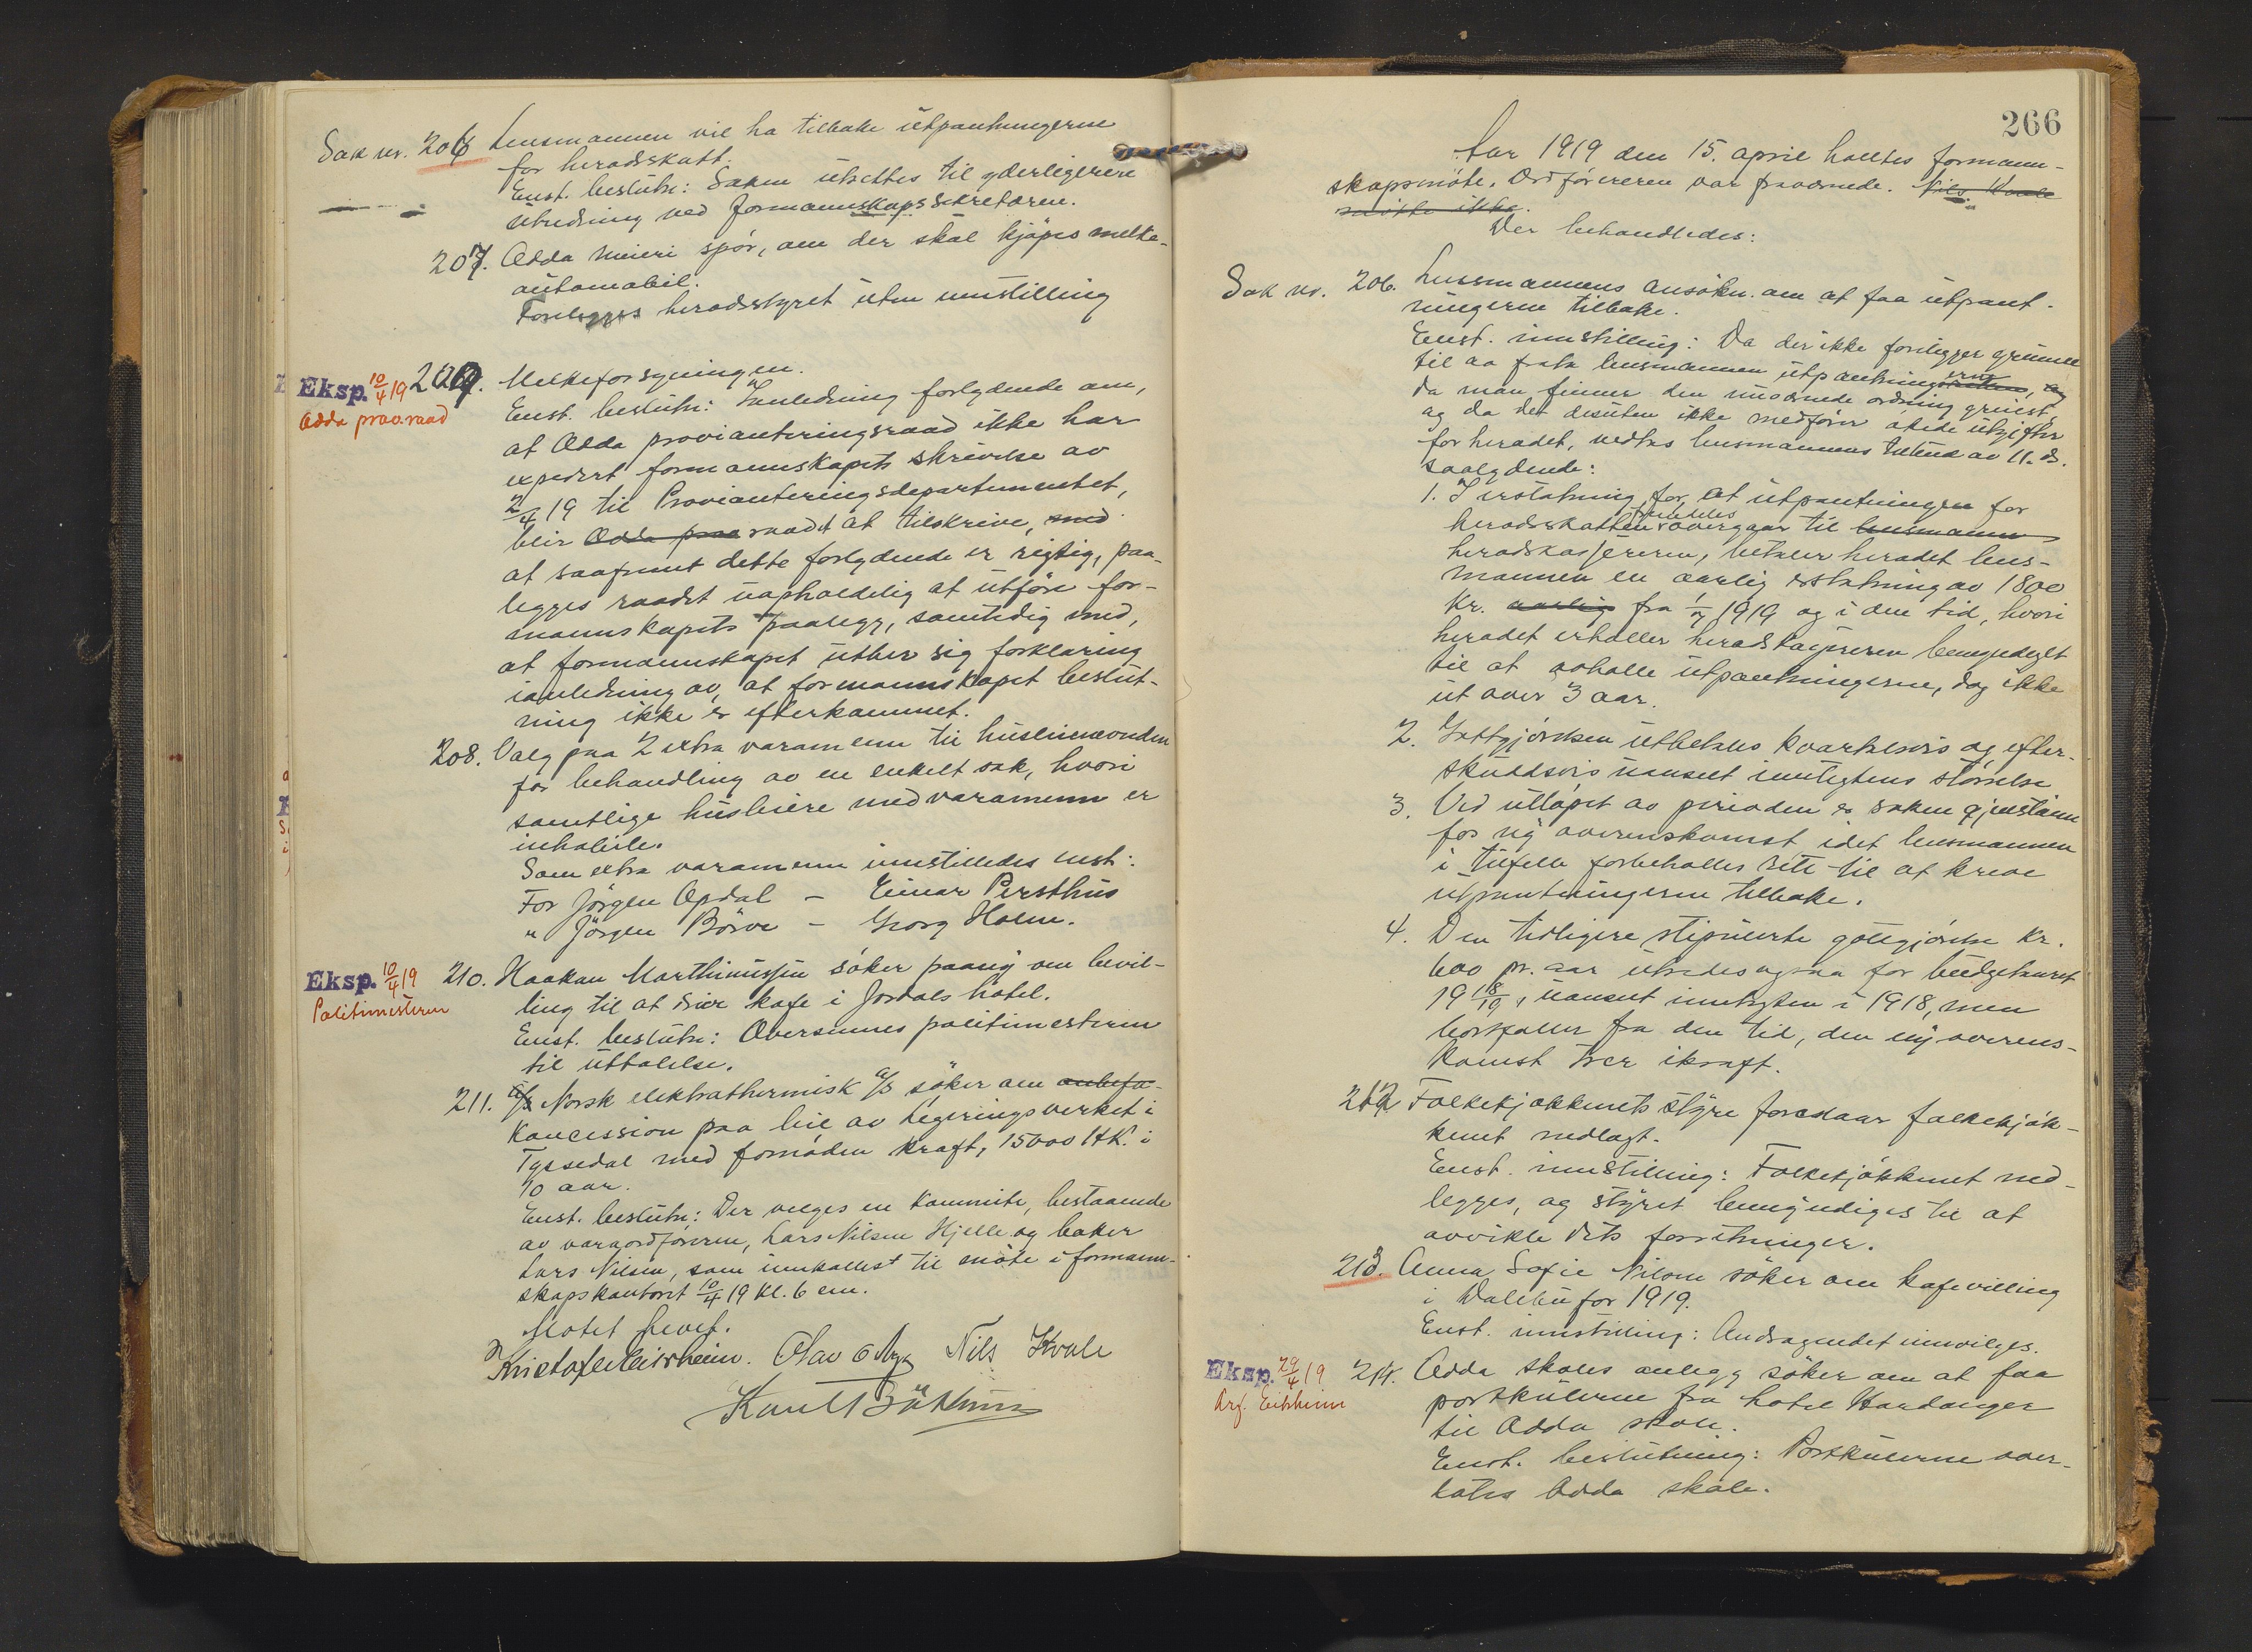 Sak nr. 206 Lensmannen vil ha tilbake utpantningerne
for heradsskatt.
Enst. beslutn: Saken utsettes til yderligerere
utredning ved formannskapssekretæren.
207. Odda meieri spør, om der skal kjøpes melke-
automobil.
Forelegges heradsstyret uten innstilling
Eksp. 10/4 19 209. Melkeforsyningen.
Odda prov.raad
Enst. beslutn: I anledning forlydende om,
at Odda provianteringsraad ikke har
expedert formannskapets skrivelse av
2/4 19 til Provianteringsdepartementet,
blir Odda prov raadet at tilskrive, med
at saafremt dette forlydende er rigtig, paa-
legges raadet uopholdelig at utføre for-
mannskapets paalegg, samtidig med,
at formannskapet utber sig forklaring
ianledning av, at formannskapet beslut-
ning ikke er efterkommet.
208. Valg paa 2 extra varamenn til husleienevnden
for behandling av en enkelt sak, hvori
samtlige husleiere med varamenn er
inhabile.
Som extra varamenn innstilledes enst:
For Jørgen Opdal - Einar Persthus
" Jørgen Børve - Georg Holm.
Eksp. 10/4 19 210. Haakon Marthinussen søker paany om bevil-
Politimesteren
ling til at drive kafe i Jordals hotel.
Enst. beslutn: Oversennes politimesteren
til uttalelse.
211. A/S Norsk elektrothermisk A/S søker om anbefa-
Koncession paa leie av Legeringsverket i
Tyssedal med fornøden kraft, 15000 HK. i
10 aar.
Enst. beslutn: Der velges en Kommite, bestaaende
av varaordføreren, Lars Nilsen Hjelle og baker
Lars Nilsen, som innkalles til møte i formann-
skapskontoret 10/4 19 kl. 6 em.
Møtet hevet.
Olav Nils Kvale
266
Aar 1919 den 15. april holltes formann-
skapsmøte. Ordføreren var fraværende. Nils Kvale
møtte ikke.
Der behandledes:
Sak nr. 206. Lensmannens ansøkn. om at faa utpant-
ningerne tilbake.
Enst. innstilling: Da der ikke foreligger grunn
til aa frata lensmannen utpantningerne, og
da man finner den nuværende ordning greiest,
og da det desuten ikke medfører økede utgifter
for heradet, vedtas lensmannens tilbud av 11. ds.
saalydende:
1. I erstatning for, at utpantningen for
heradsskatten fremdeles overgaar til lensmannen
heradskasjereren, betaler heradet lens-
mannen en aarlig erstatning av 1800
kr. aarlig fra 1/7 1919 og i den tid, hvori
heradet erholler heradskasjereren bemyndiget
til at avholle utpantningerne, dog ikke
ut over 3 aar.
2. Gottgjørelsen utbetales kvartalsvis og efter-
skuddsvis uanseet inntegtens størrelse
3. Ved utløpet av perioden er saken gjenstann
for ny overenskomst idet lensmannen
i tilfelle forbeholles rett til at kreve
utpantningerne tilbake.
4. Den tidligere stipulerte gotgjørelse kr.
600 pr. aar utredes ogsaa for budgetaaret
19 18/19, uanseet inntegten i 1918, men
bortfaller fra den tid, den ny overens-
komst trær ikraft.
212 Folkekjøkkenets styre foreslaar folkekjøk-
kenet nedlagt.
Enst. innstilling: Folkekjøkkenet ned-
legges, og styret bemyndiges til at
avvikle dets forretninger.
213. Anna Sofie Nilsen søker om kafevilling
i Dalebu for 1919.
Enst. innstilling: Andragendet innvilges.
Eksp. 29/4 19 214. Odda skoles anlegg søker om at faa
Arf. Eitrheim
portkulerne fra hotel Hardanger
til Odda skole.
Enst. beslutning: Portkulerne over-
lates Odda skole.